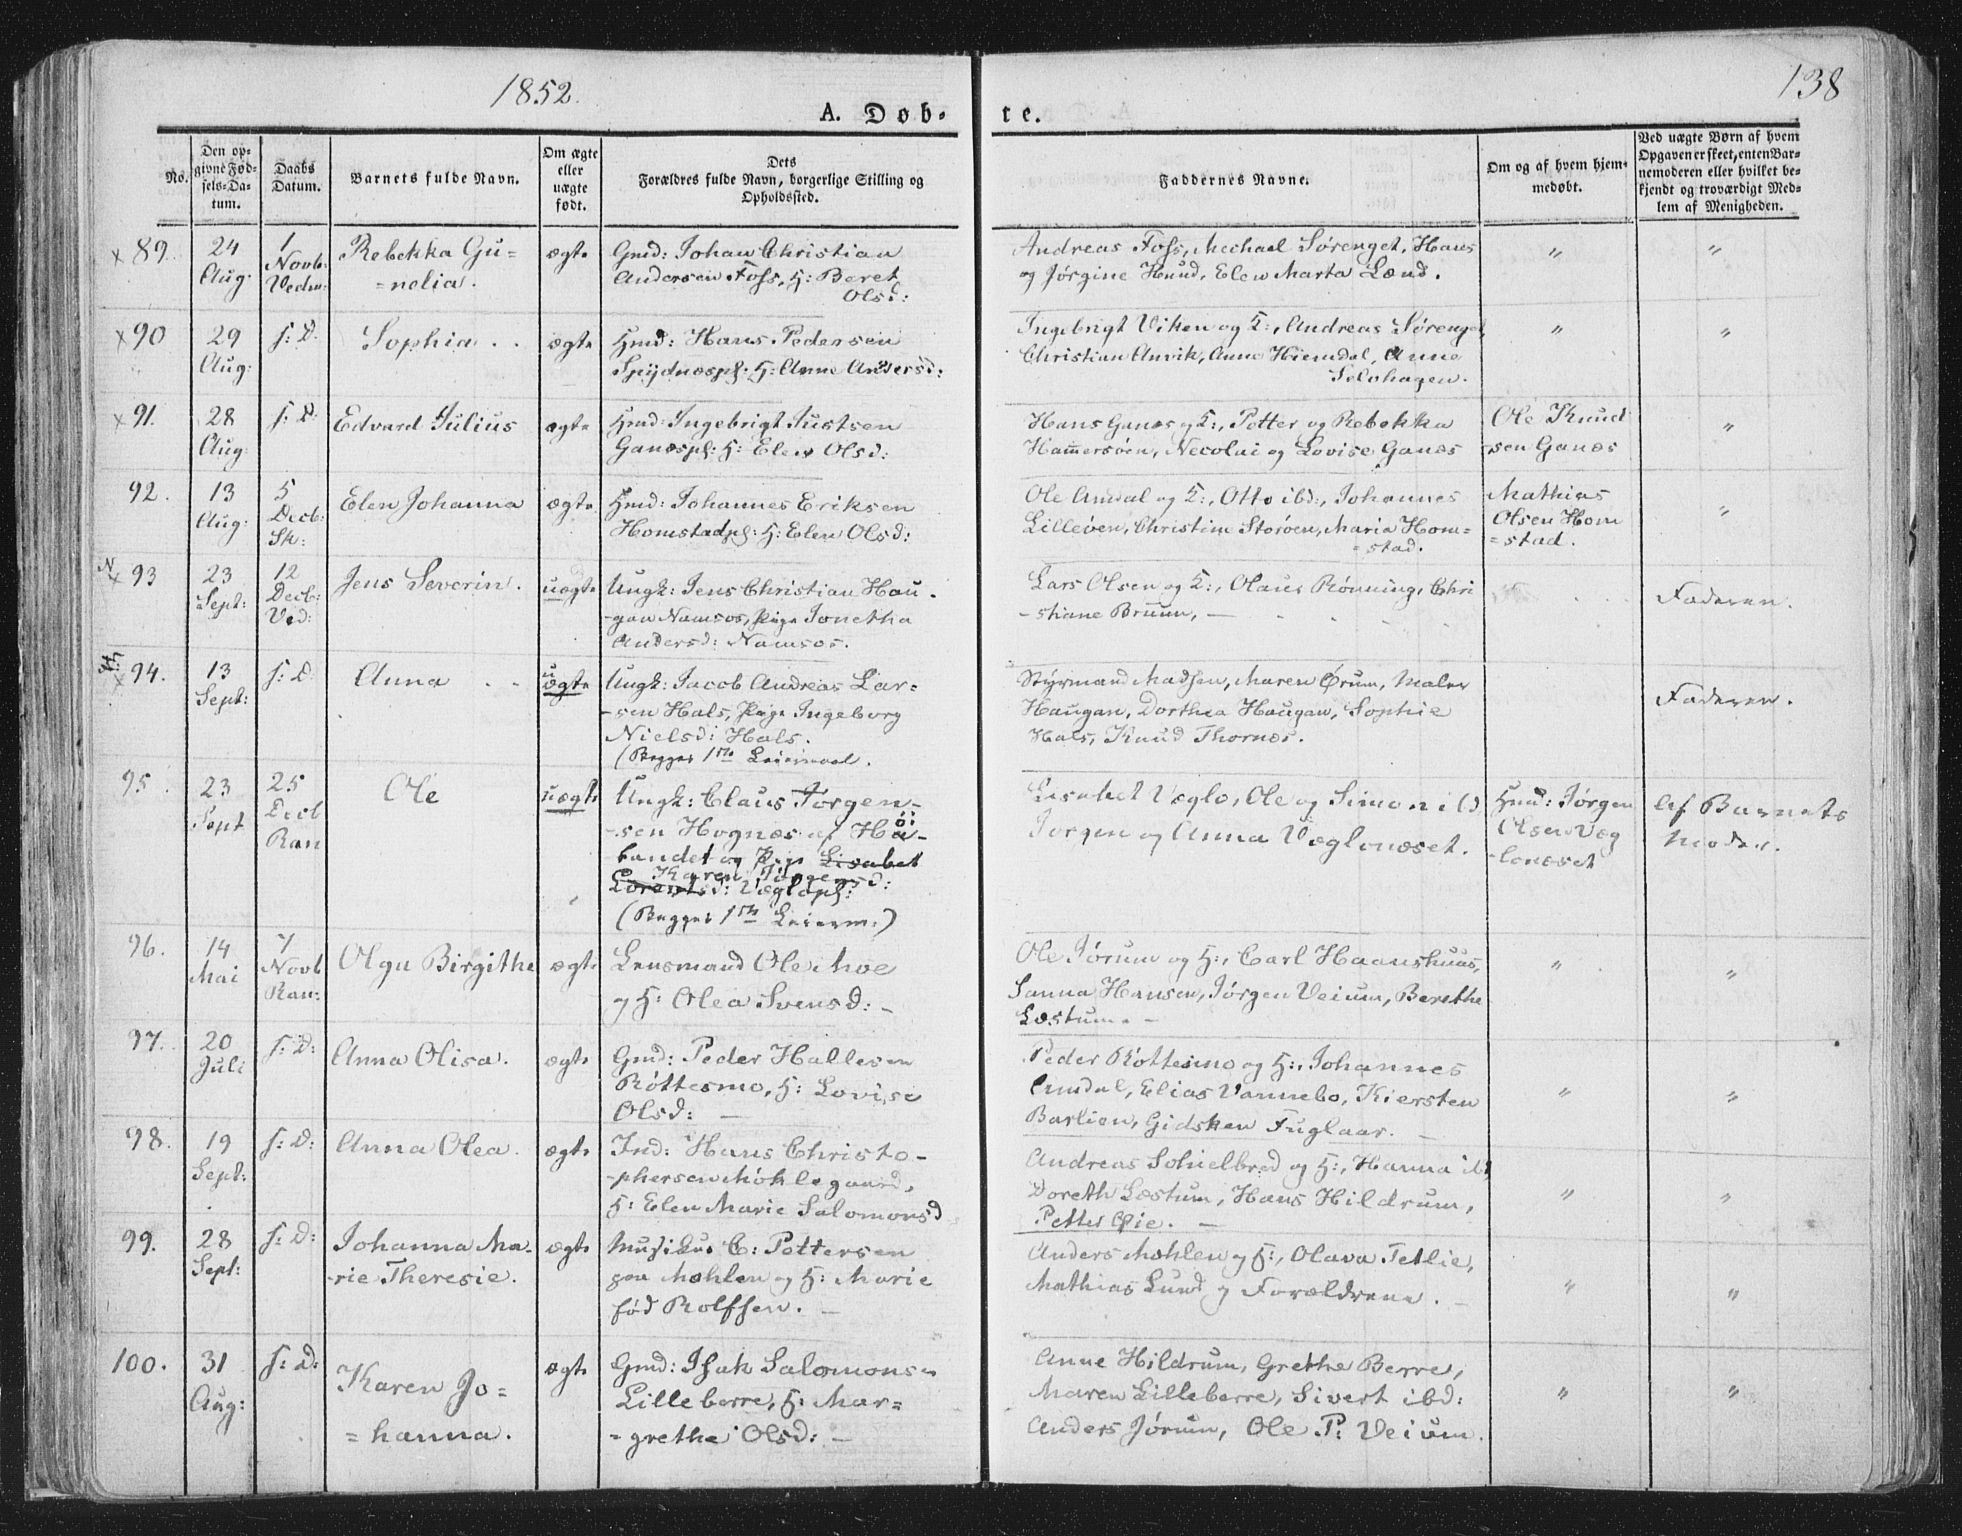 1852.
138
A. Døb-
te.
No.
Den op-
givne Fød-
sels-Da-
tum.
Daabs
Datum.
Barnets fulde Navn.
Om ægte
eller
uægte
født.
Dets
Forældres fulde Navn, borgerlige Stilling og
Opholdssted.
Faddernes Navne.
Om og af hvem hjem-
medøbt.
Ved uægte Børn af hvem
Opgaven er skeet, enten Bar-
nemoderen eller hvilket be-
kjendt og troværdigt Med-
lem af Menigheden.
x 89.
24
Aug.
1
Novb:
Vedm:
Rebekka Gu=
=nelia.
ægte
Gmd: Johan Christian
Andersen Foss, H: Beret
Olsd:
Andreas Foss, Michael Sørenget, Hans
og Jørgine Hund, Elen Marta Lænd.
"
"
x 90
29
Aug:
s: D.
Sophia
ægte
Hmd: Hans Pedersen
Spydnæspl: H: Anne Andersd:
Ingebrigt Viken og K:, Andreas Sørenget,
Christian Anvik, Anne Hiemdal, Anne
Selohagen.
"
"
x 91.
28
Aug
s: D.
Edvard Julius
ægte
Hmd: Ingebrigt Justsen
Ganæspl: H: Elen Olsd:
Hans Ganæs og K:, Petter og Rebekka
Hammersöen, Necolai og Lovise Ganæs
Ole Knud
sen Ganæs
"
92.
13
Aug:
5
Decb:
Sk:
Elen Johanna
ægte
Hmd: Johannes Eriksen
Homstadpl: H: Elen Olsd:
Ole Amdal og K:, Otto ibd:, Johannes
Lilleöen, Christine Storöen, Maria Hom=
=stad.
Mathias
Olsen Hom
=stad.
"
N
x 93
23
Sept:
12
Decb:
Ved:
Jens Severin.
uægte
Ungk: Jens Christian Hau-
-gan Namsos, Pige Jonetha
Andersd: Namsos.
Lars Olsen og K:, Olaus Rønning, Chri
-stiane Bruun, —
Faderen.
x 94.
13
Sept:
s: D
Anna
uægte
Ungk: Jacob Andreas Lar=
-sen Hals, Pige Ingeborg
Nielsd: Hals.
(Begges 1ste Leiermaal.
Styrmand Madsen, Maren Ørum, Maler
Haugan, Dorthea Haugan, Sophie
Hals, Knud Thornæs.
Faderen.
95.
23
Sept
25
Decb
Ran
Ole
uægte
Ungk: Claus Jørgen-
-sen Hognæs af Hö-
landet og Pige Lisabet
Karen Jørgensd:
Lorentsd: Væglopl:
(Begges 1ste Leierm.)
Lisabet Væglo, Ole og Simon ibd
Jørgen og Anna Væglonæset.
Hmd: Jørgen
Olsen Væg
-lonæset
Af Barnets
Moder.
96.
14
Mai
7
Novb
Ran:
Olga Birgithe
ægte
Lensmand Ole Moe
og H: Olea Svensd: -
Ole Jørum og H:, Carl Haanshuus,
Sanna Hansen, Jørgen Veium, Berethe
Læstum. -
"
"
97.
20
Juli
s: D:
Anna Olisa.
ægte
Gmd: Peder Hallesen
Röttesmo, H: Lovise
Olsd: —
Peder Röttesmo og H:, Johannes
Amdal, Elias Vannebo, Kiersten
Barlien, Gidsken Fuglaar. —
"
"
98.
19
Sept:
s: D:
Anna Olea.
ægte
Ind: Hans Christo-
-phersen Möhlegaard,
H: Elen Marie Salomonsd
Andreas Schielbred og H:, Hanna ibd
Doreth Læstum, Hans Hildrum,
Petter Øie. —
"
"
99.
28
Sept:
s: D:
Johanna Ma-
-rie Theresie.
ægte
Musikus C: Pettersen
paa Mohlen og H: Marie
född Rolfsen. —
Anders Mohlen og H:, Olava Tetlie,
Mathias Lund og Forældrene. —
"
"
100.
31
Aug:
s: D:
Karen Jo=
=hanna.
ægte
Gmd: Isak Salomonsen
Lilleberre, H: Mar=
-grethe Olsd: —
Anne Hildrum, Grethe Berre,
Maren Lilleberre, Sivert ibd:
Anders Jørum, Ole P: Veium.
"
"